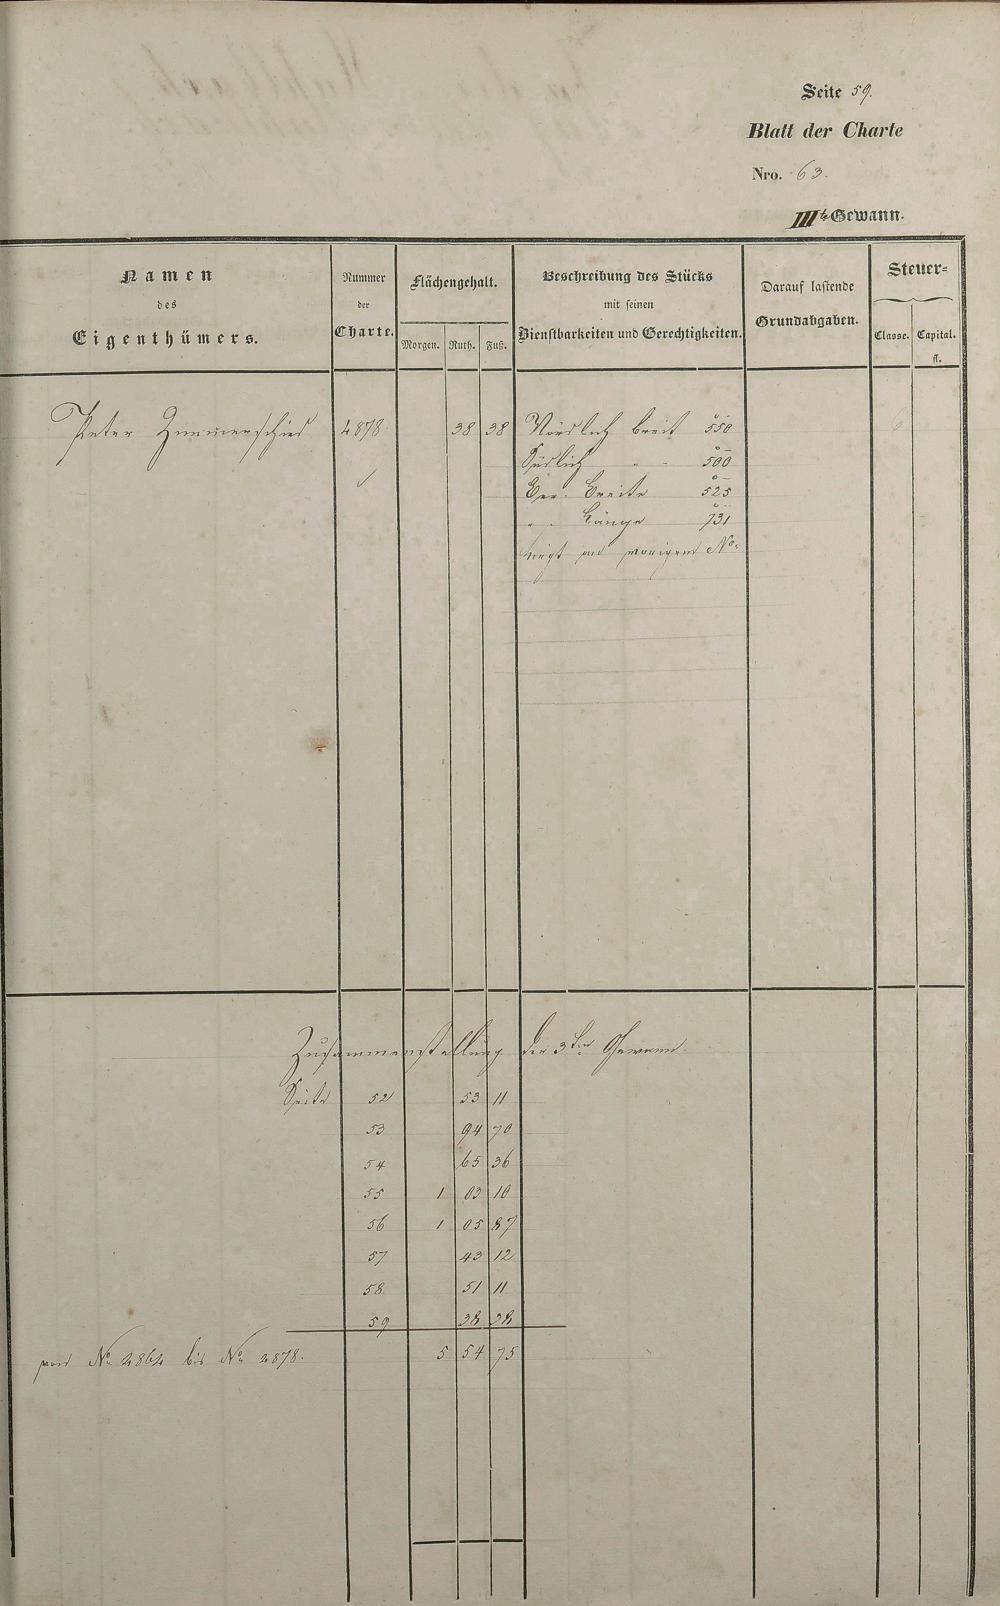 Seite 59.
Blatt der Charte
Nro. 63.
IIIte Gewann.
Namen
des
Eigenthümers.
Nummer
der
Charte.
Flächengehalt.
Morgen. Ruth. Fuß.
Beschreibung des Stücks
mit seinen
Dienstbarkeiten und Gerechtigkeiten.
Darauf lastende
Grundabgaben.
Steuer=
Classe. Capital.
fl.
Peter Zimmerschied 4878 38 38 Nördlich breit 550 6
Südlich " " 500
Ber. Breite 525
" " Länge 731
liegt an vorigem No.
Zusammenstellung der 3ten Gewann
Seite 52 53 11
53 94 70
54 65 36
55 1 03 10
56 1 05 87
57 43 12
58 51 11
59 38 38
von No. 4864 bis No. 4878. 5 54 75